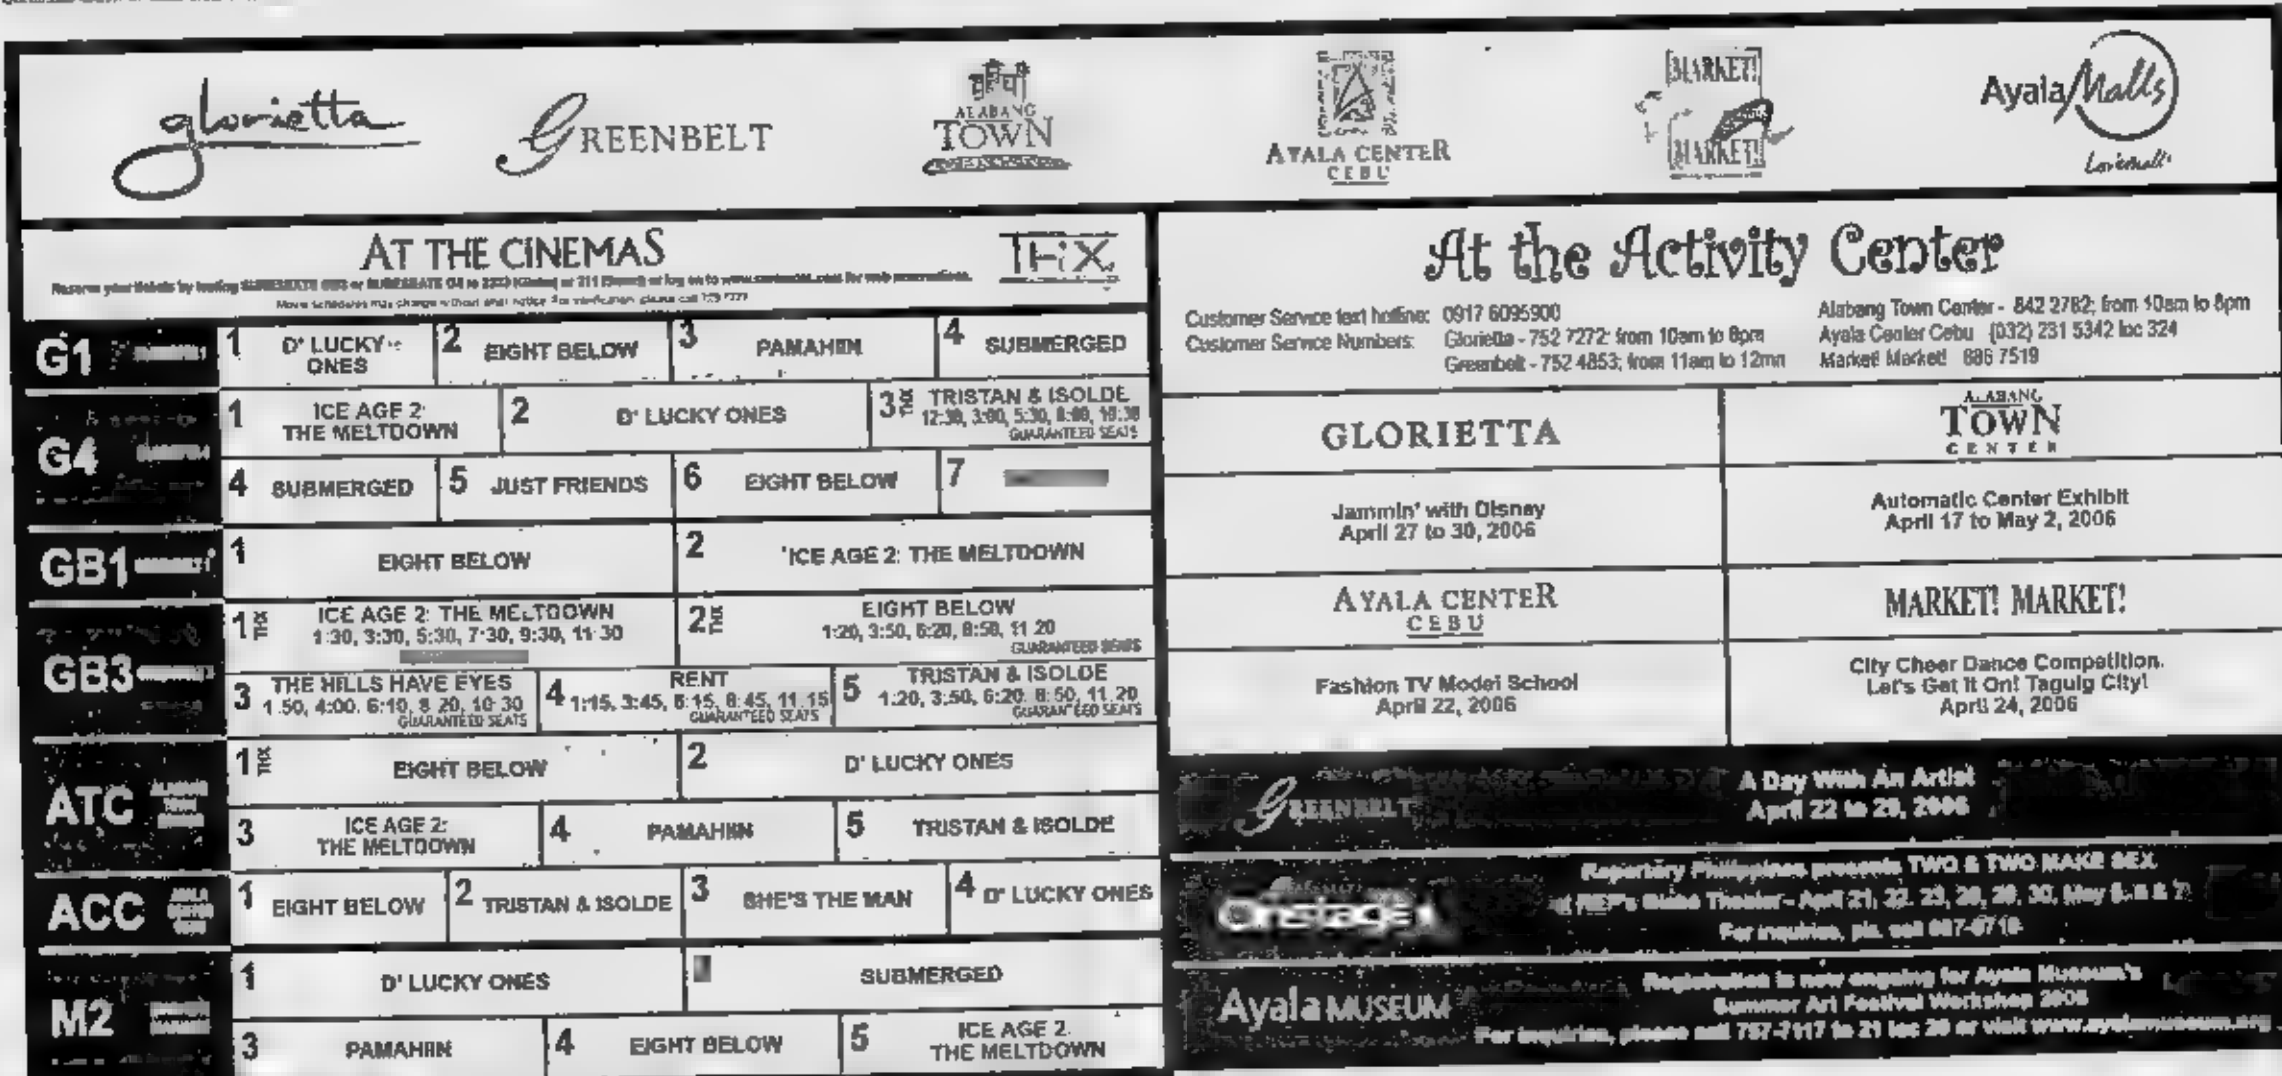 glorietta
GREENBELT
ALABANG
TOWN
AYALA CENTER
CEBU
MARKET!
MARKET!
Ayala Malls
AT THE CINEMAS
THX
G1
1 D' LUCKY ONES
2 EIGHT BELOW
3 PAMAHIIN
4 SUBMERGED
G4
1 ICE AGE 2:
THE MELTDOWN
2 D' LUCKY ONES
3 THX TRISTAN & ISOLDE
12:30, 3:00, 5:30, 8:00, 10:30
GUARANTEED SEATS
4 SUBMERGED
5 JUST FRIENDS
6 EIGHT BELOW
7
GB1
1 EIGHT BELOW
2 ICE AGE 2: THE MELTDOWN
GB3
1 THX ICE AGE 2: THE MELTDOWN
1:30, 3:30, 5:30, 7:30, 9:30, 11:30
2 THX EIGHT BELOW
1:20, 3:50, 6:20, 8:50, 11.20
GUARANTEED SEATS
3 THE HILLS HAVE EYES
1.50, 4:00. 6:10, 8 20, 10:30
GUARANTEED SEATS
4 RENT
1:15, 3:45, 6:15, 8:45, 11.15
GUARANTEED SEATS
5 TRISTAN & ISOLDE
1:20, 3:50, 6:20. 8:50, 11.20
GUARANTEED SEATS
ATC
1 THX EIGHT BELOW
2 D' LUCKY ONES
3 ICE AGE 2:
THE MELTDOWN
4 PAMAHIIN
5 TRISTAN & ISOLDE
ACC
1 EIGHT BELOW
2 TRISTAN & ISOLDE
3 SHE'S THE MAN
4 D' LUCKY ONES
M2
1 D' LUCKY ONES
SUBMERGED
3 PAMAHIIN
4 EIGHT BELOW
5 ICE AGE 2:
THE MELTDOWN
At the Activity Center
Customer Service text hotline: 0917 6095900
Customer Service Numbers: Glorietta - 752 7272; from 10am to 8pm
Greenbelt - 752 4853; from 11am to 12mn
Alabang Town Center - 842 2782; from 10am to 8pm
Ayala Center Cebu (032) 231 5342 loc 324
Market! Market! 886 7519
GLORIETTA
ALABANG
TOWN
CENTER
Jammin' with Disney
April 27 to 30, 2006
Automatic Center Exhibit
April 17 to May 2, 2006
AYALA CENTER
CEBU
MARKET! MARKET!
Fashion TV Model School
April 22, 2006
City Cheer Dance Competition.
Let's Get It On! Taguig City!
April 24, 2006
GREENBELT
A Day With An Artist
April 22 to 2
Onstage
Repertory Philippines presents TWO & TWO MAKE SEX
For inquiries, pls. call
Ayala MUSEUM
Registration is now ongoing for Ayala Museum's
Summer Art Festival Workshop 2006
For inquiries, please call 757-7117 to 21 loc 20 or visit www.ayalamuseum.org